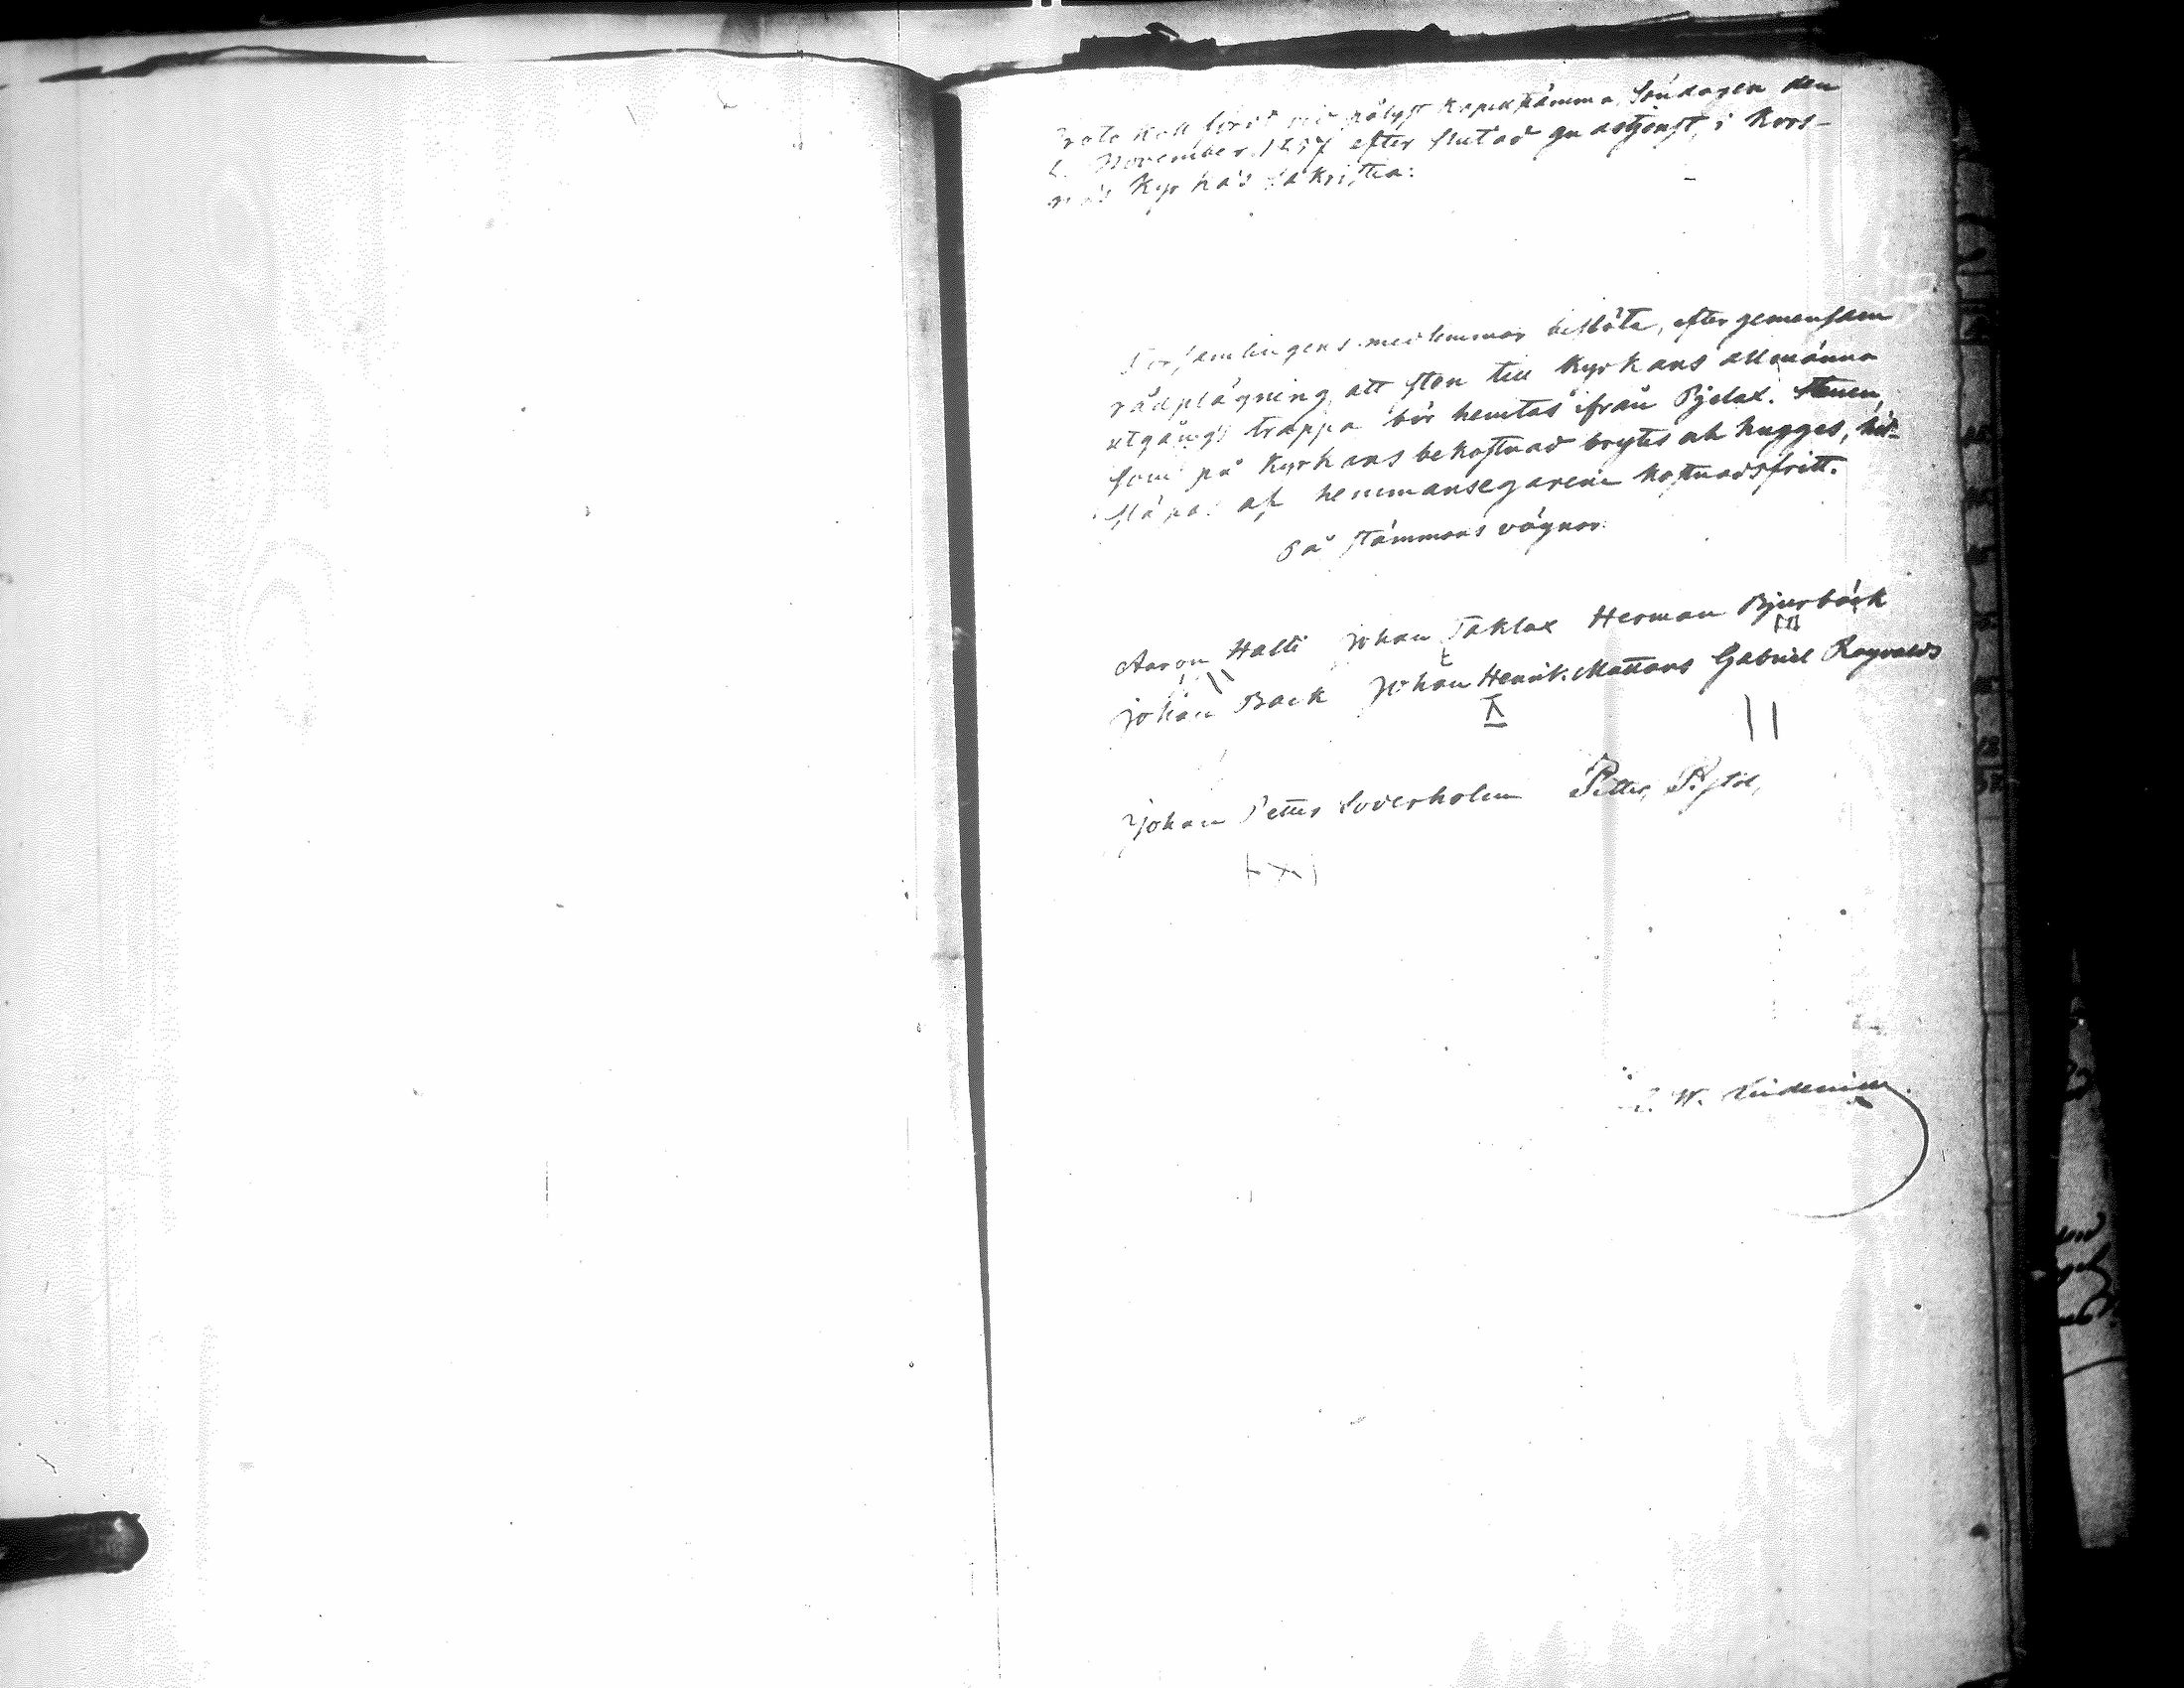 Protokoll fördt vid pålyst Kapellstämma Söndagen den
November 1857 efter slutad gudstjenst, i Kors-
näs Kyrkas Sakristia:
Församlingens medlemmar beslöto, efter gemensam
rådplägning, att sten till Kyrkans allmänna
utgångs trappa bör hemtas ifrån Bjelax. Stenen,
som på Kyrkans bekostnad brytes och hugges, hit-
släpas af hemmansegarene kostnadsfritt.
På stämmans vägnar:
Aaron Halti Johan Taklax Herman Bjurbäck
Johan Back Johan Henrik Mattans Gabriel Ragvalds
Johan Petter Söderholm Petter
W. Lindenius